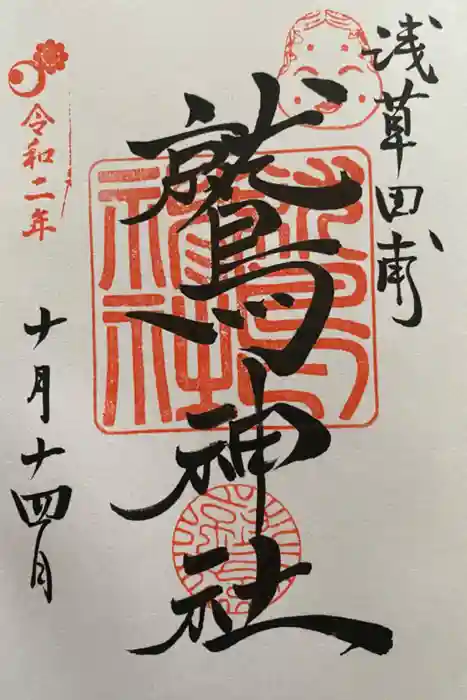 浅草田甫
鷲神社
令和二年
十月十四日